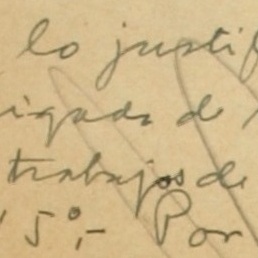 lo justif
igada de
trabajos de
5°,- Por